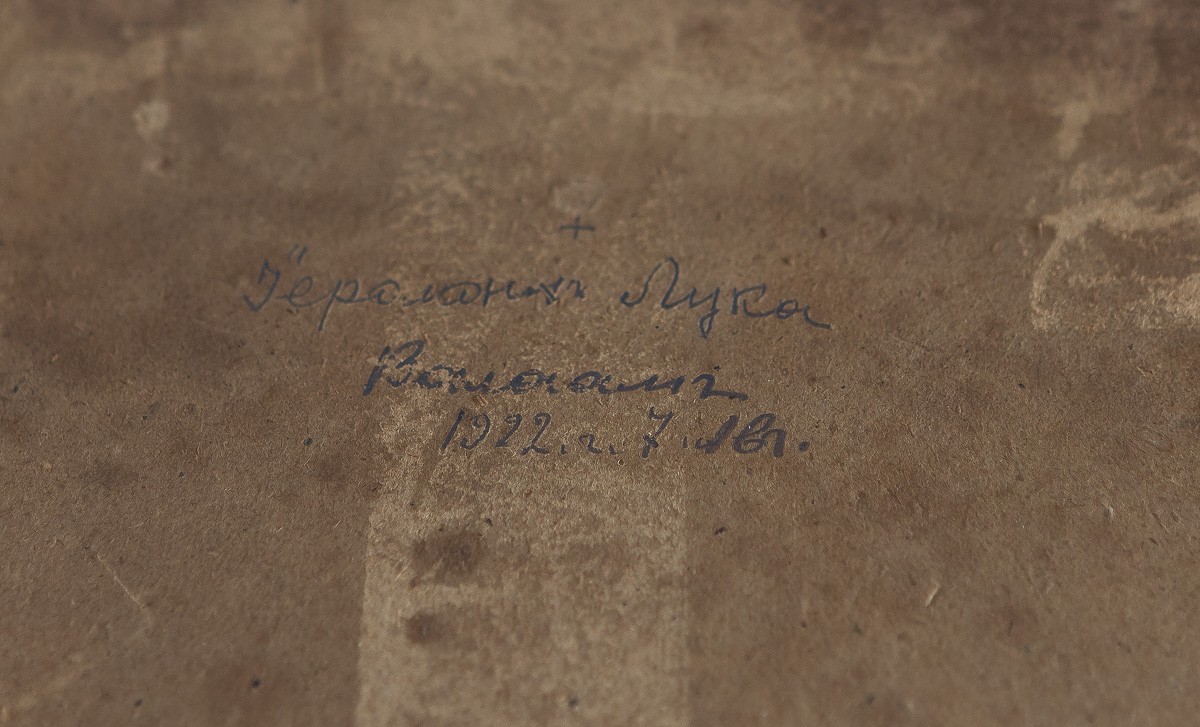 +
Іеромонахъ Лука
Валаамъ
1922. г. 7. Авг.